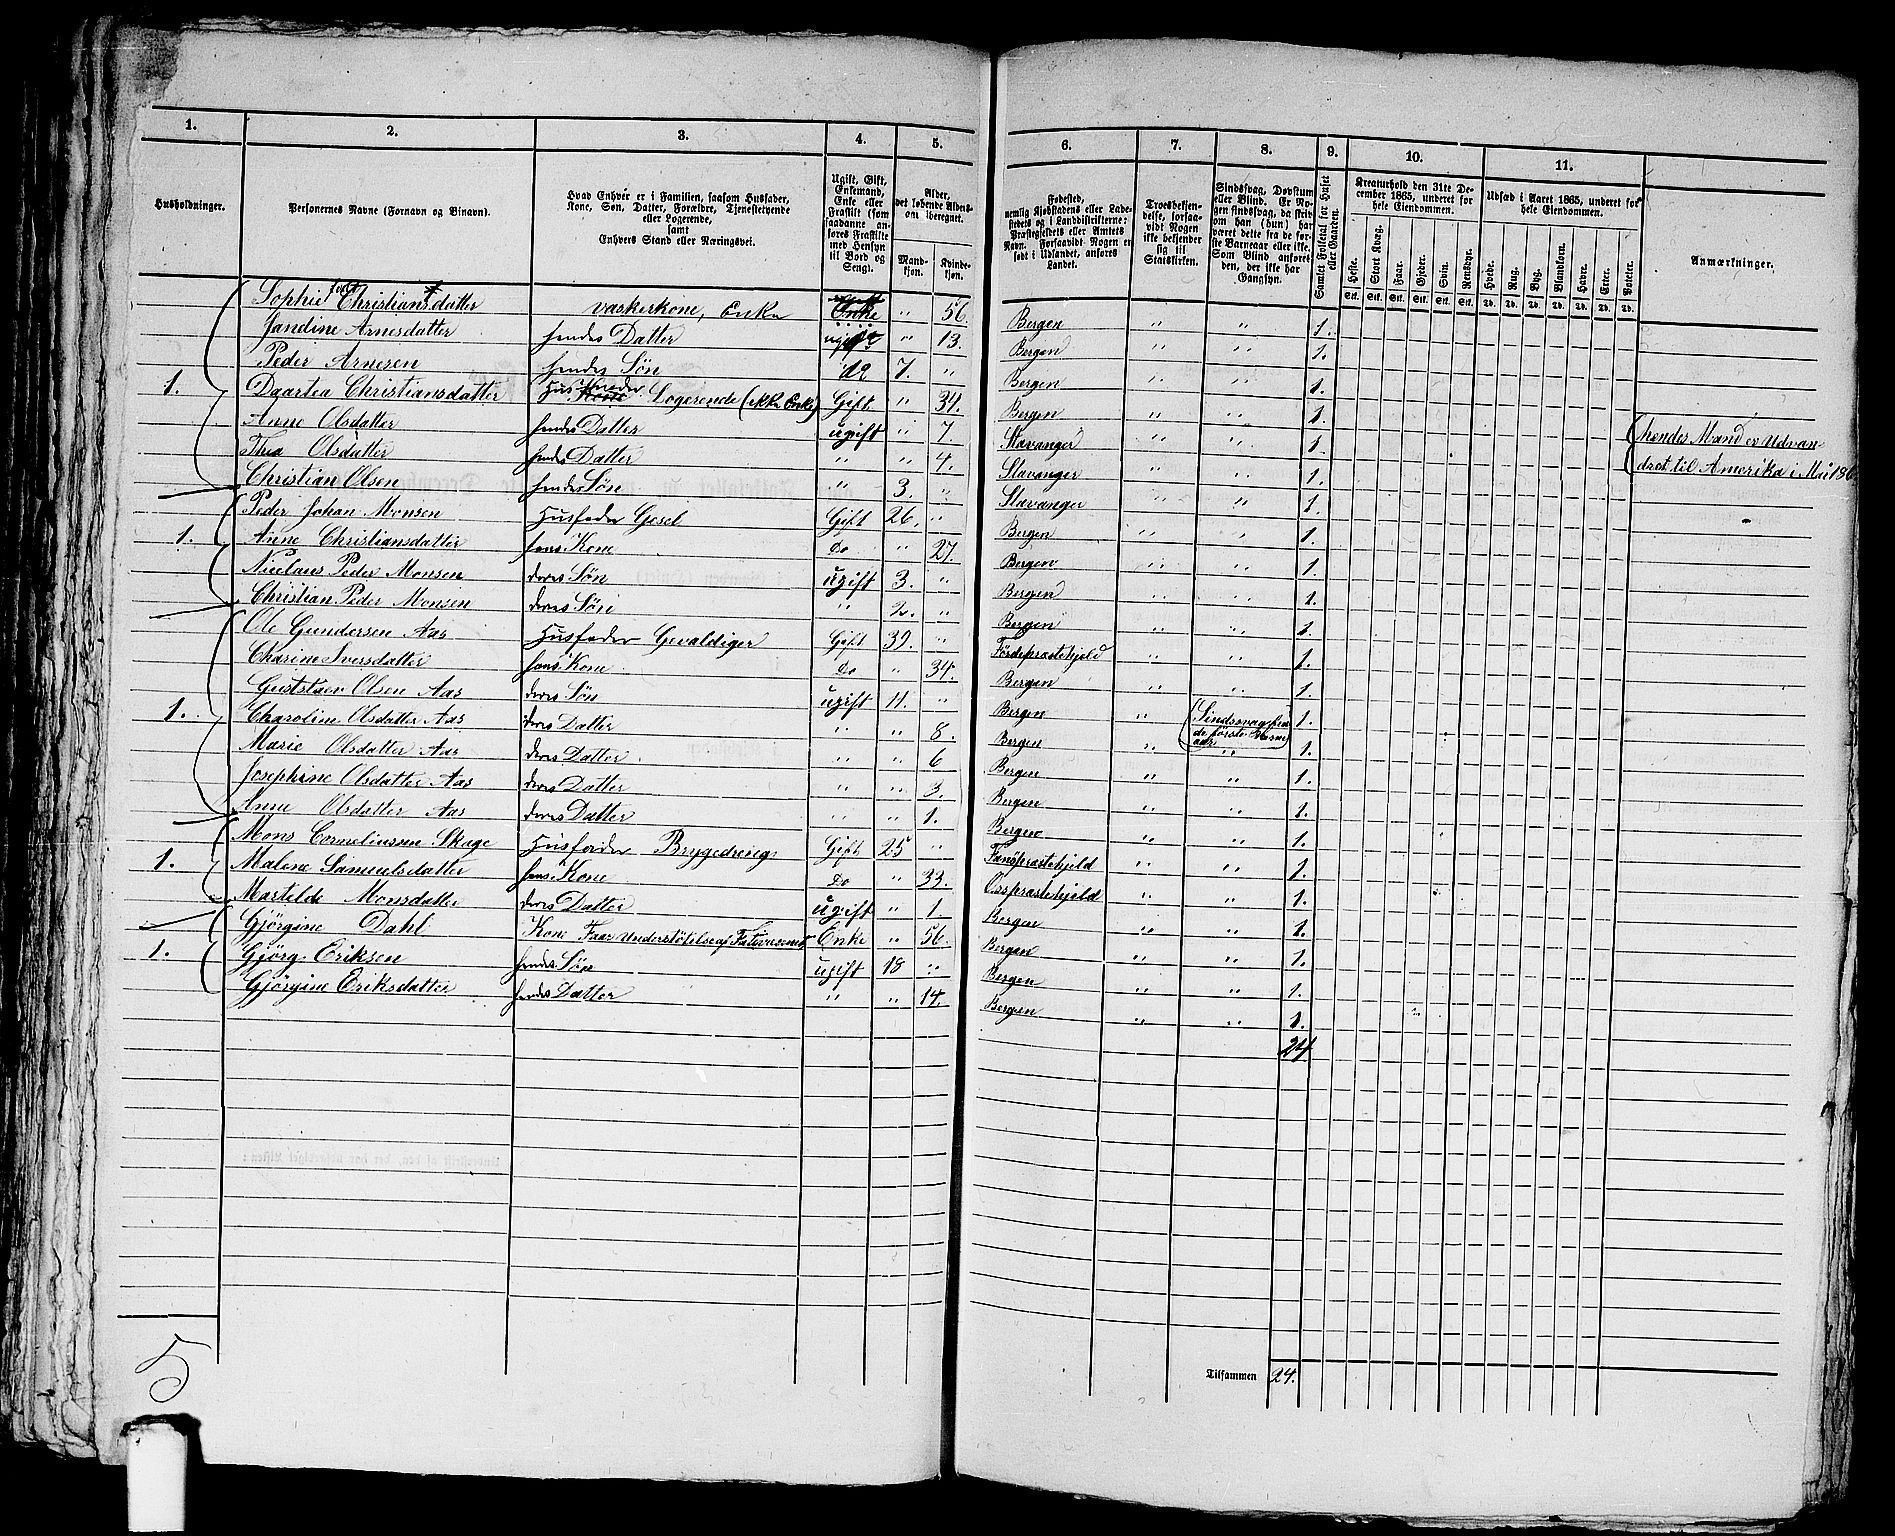 1. 2. 3. 4. 5. 6. 7. 8. 9. 10. 11.
Husholdninger.
Personernes Navne (Fornavn og Binavn).
Hvad Enhver er i Familien, saasom Husfader,
Kone, Søn, Datter, Forældre, Tjenestetyende
eller Logerende,
samt
Enhvers Stand eller Næringsvei.
Ugift, Gift,
Enkemand,
Enke eller
Fraskilt (som
saadanne an-
føres Fraskilte
med Hensyn
til Bord og
Seng).
Alder,
det løbende Alders-
aar iberegnet.
Mand-
kjøn.
Kvinde-
kjøn.
Fødested,
nemlig Kjøbstadens eller Lade-
stedets og i Landdistrikterne:
Præstegjeldets eller Amtets
Navn. Forsaavidt Nogen er
født i Udlandet, anføres
Landet.
Troesbekjen-
delse, forsaa-
vidt Nogen
ikke bekjender
sig til
Statskirken.
Sindssvag, Døvstum
eller Blind. Er No-
gen sindssvag, da skriv
om han (hun) har
været dette fra de før-
ste Barneaar eller ikke.
Som Blind anføres
den, der ikke har
Gangsyn.
Samlet Folketal for Huset
eller Gaarden.
Kreaturhold den 31te De-
cember 1865, underet for
hele Eiendommen.
Heste. Stort Kvæg. Faar. Gjeder. Svin. Rensdyr.
Stk. Stk. Stk. Stk. Stk. Stk.
Udsæd i Aaret 1865, underet for
hele Eiendommen.
Hvede. Rug. Byg. Blandkorn. Havre. Erter. Poteter.
Td. Td. Td. Td. Td. Td. Td.
Anmærkninger.
Sophie Christiansdatter vaskerkone, Enke Enke " 56. Bergen " " 1.
Jandine Arnesdatter hendes Datter ugift " 13. Bergen " " 1.
Peder Arnesen hendes Søn do 7. " Bergen " " 1.
1. Daartea Christiansdatter Husmoder Kone Logerende (ikke Enke) Gift " 34. Bergen " " 1.
Anne Olsdatter hendes Datter ugift " 7. Stavanger " " 1. hendes Mand er Udvan
Thea Olsdatter hendes Datter " " 4. Stavanger " " 1. dret til Amerika i Mai 186
Christian Olsen hendes Søn " 3. " Stavanger " " 1.
Peder Johan Monsen Husfader Gesel Gift 26. " Bergen " " 1.
1. Anne Christiansdatter hans Kone Do " 27. Bergen " " 1.
Nicolaus Peder Monsen deres Søn ugift 3. " Bergen " " 1.
Christian Peder Monsen deres Søn " 2. " Bergen " " 1.
Ole Gundersen Aas Husfader Gevaldiger Gift 39. " Fördepræstehjeld " " 1.
Charine Iversdatter hans Kone Do " 34. Bergen " " 1.
Guststaev Olsen Aas deres Søn ugift 11. " Bergen " " 1.
1. Charoline Olsdatter Aas deres Datter " " 8. Bergen " Sindssvag fra de förste Barne aar 1.
Marie Olsdatter Aas deres Datter " " 6 Bergen " " 1.
Josephine Olsdatter Aas deres Datter " " 3. Bergen " " 1.
Anne Olsdatter Aas deres Datter " " 1. Bergen " " 1.
Mons Corneliussen Skage Husfader Brygedreng Gift 25 " Fanöpræstehjeld " " 1.
1. Malene Samuelsdatter hans Kone Do " 33. Osspræstehjeld " " 1.
Martilde Monsdatter deres Datter ugift " 1 Bergen " " 1.
Gjörgine Dahl Kone Faar Understötelse af Fativæsenet Enke " 56. Bergen " " 1.
1. Gjörg Eriksen hendes Søn ugift 18 " Bergen " " 1.
Gjörgine Eriksdatter hendes Datter " " 14. Bergen " " 1.
24
Tilsammen 24.
5